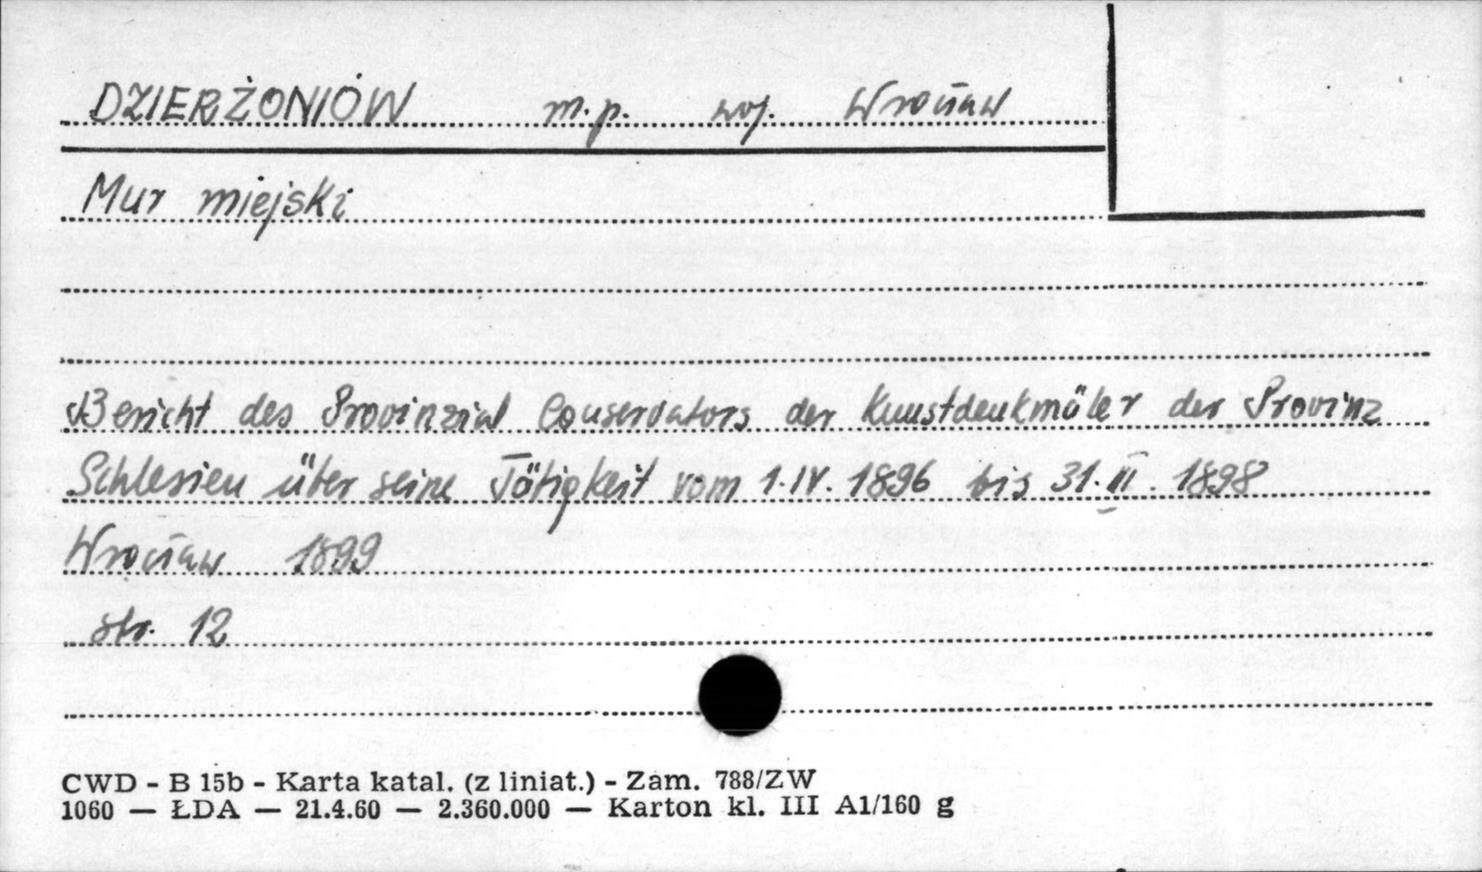 DZIERŻONIÓW m.p. woj. Wrocław
Mur miejski
Bericht des Provinzial Conservators der Kunstdenkmäler der Provinz
Schlesien über seine Tätigkeit vom 1.IV.1896 bis 31.III.1898
Wrocław 1899
str. 12
CWD - B 15b - Karta katal. (z liniat.) - Zam. 788/ZW
1060 — ŁDA — 21.4.60 — 2.360.000 — Karton kl. III A1/160 g